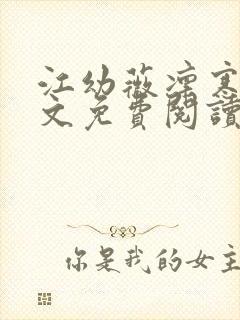 江幼薇凛寒
文免費閱讀
你是我的女主